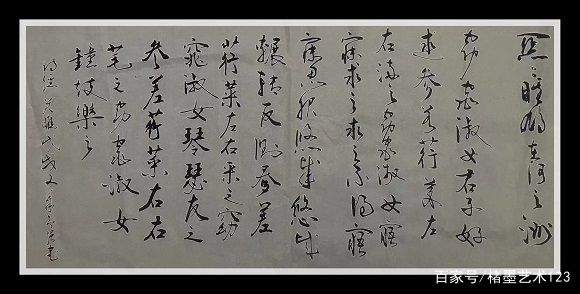 關關雎鸠在河之洲
窈窕淑女君子好
逑参差荇菜左
右流之窈窕淑女寤
寐求之求之不得寤
寐思服悠哉悠哉
輾轉反側参差
荇菜左右采之窈
窕淑女琴瑟友之
参差荇菜左右
芼之窈窕淑女
鐘鼓樂之
诗经关雎
百家号/楮墨艺术123